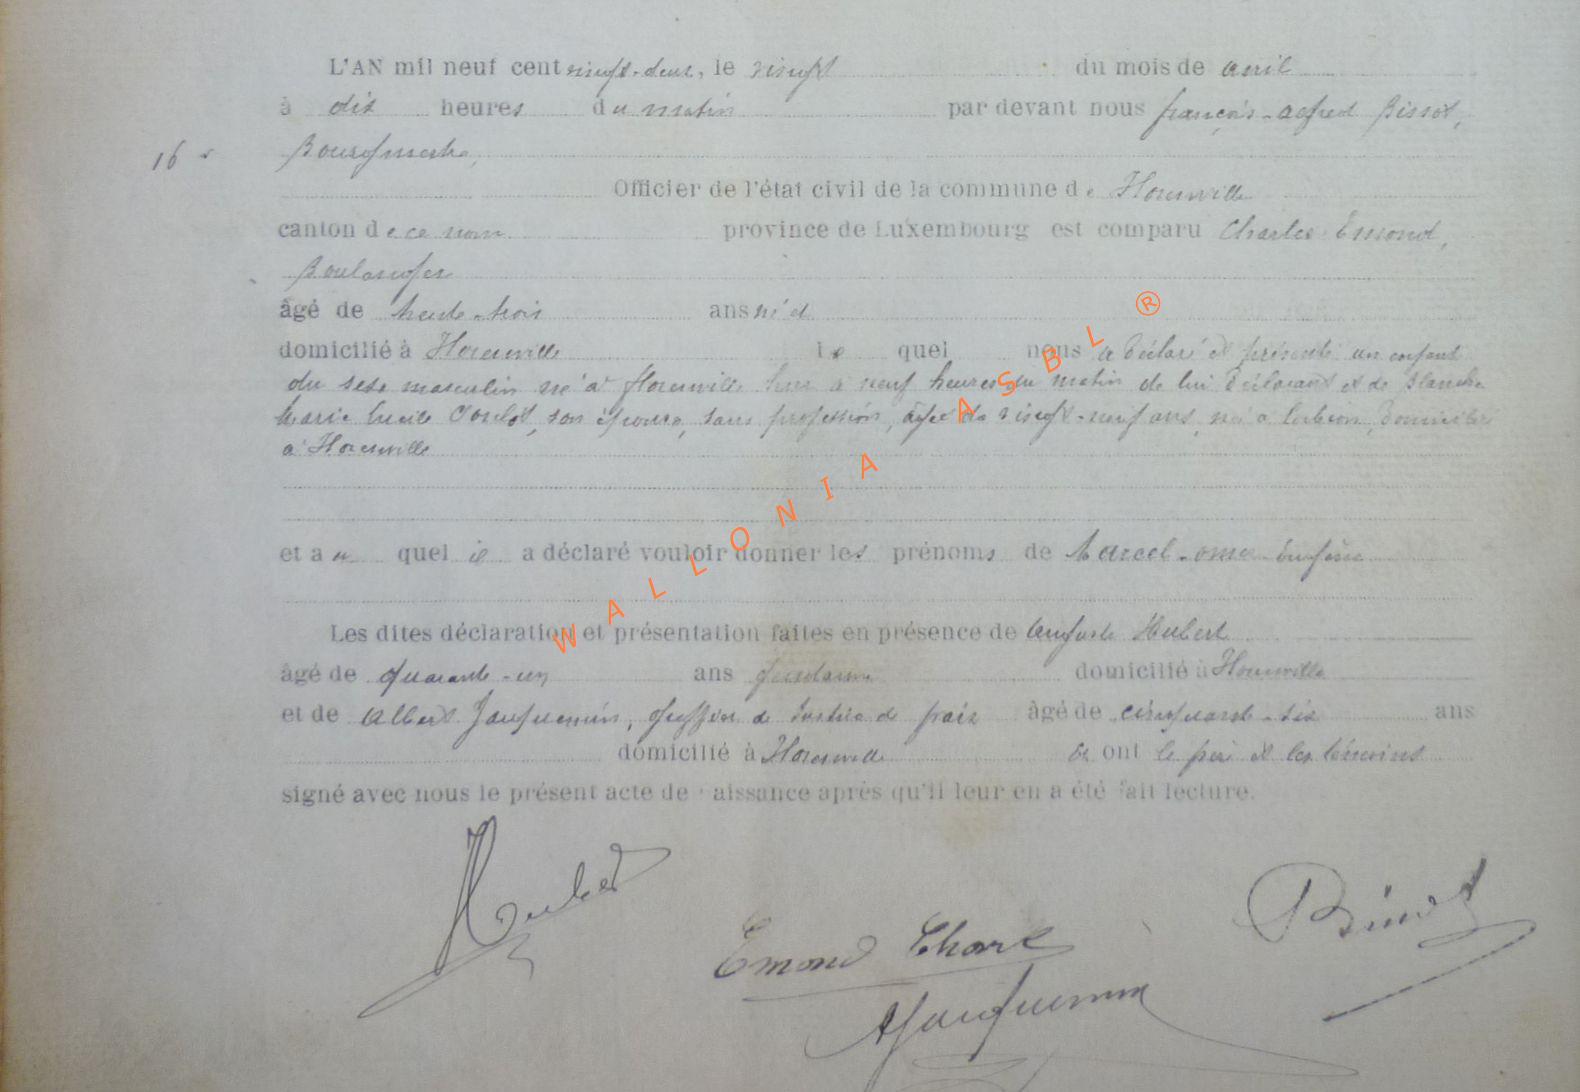 L'AN mil neuf cent vingt-deux, le vingt du mois de avril
à dix heures du matin par devant nous françois-alfred Bissot,
16
Bourgmestre,
Officier de l'état civil de la commune de Florenville
canton de ce nom province de Luxembourg est comparu Charles Emond,
Boulanger
âgé de trente-trois ans né et
domicilié à Florenville lequel nous a déclaré et présenté un enfant
du sexe masculin né à Florenville hier à neuf heures du matin de lui déclarant et de Blanche
Marie Lucile son épouse, sans profession, âgée de vingt-neuf ans, née à domiciliée
à Florenville
et auquel il a déclaré vouloir donner les prénoms de Marcel-omer-Eugène
Les dites déclaration et présentation faites en présence de Auguste Hubert
âgé de quarante-un ans gendarme domicilié à Florenville
et de Albert Jacquemin, greffier de Justice de paix âgé de cinquante-six ans
domicilié à Florenville et ont le père et les témoins
signé avec nous le présent acte de naissance après qu'il leur en a été fait lecture.
Hubert
Emond Charle
Bissot
AJacquemin
WALLONIA ASBL ®